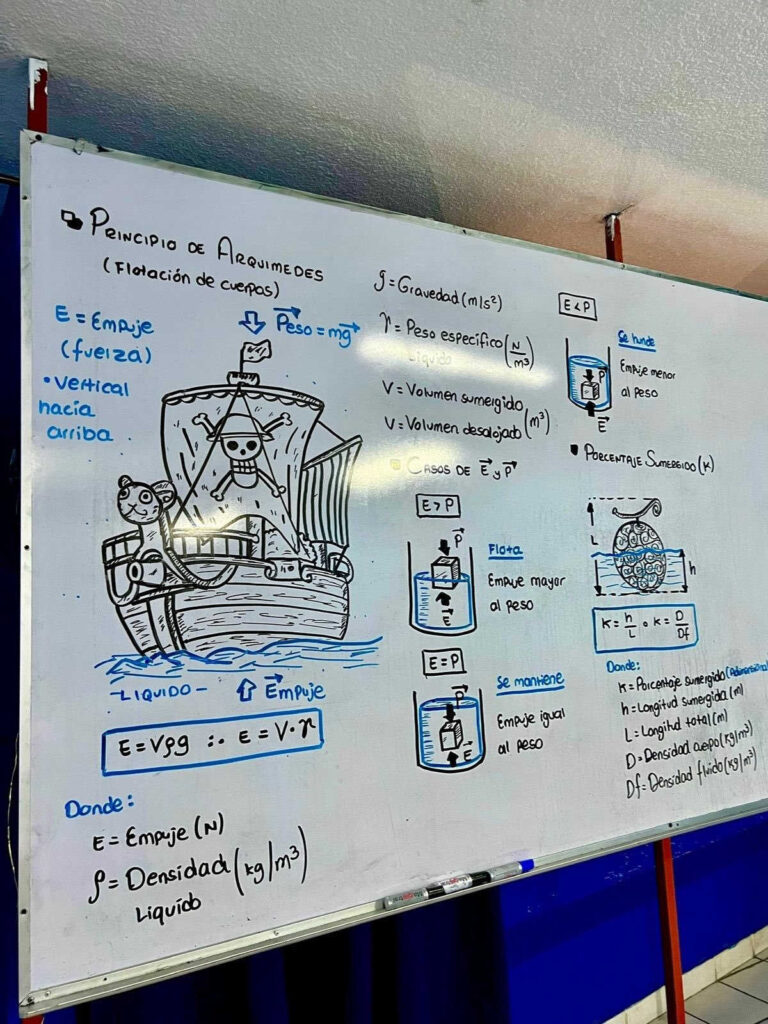 PRINCIPIO DE ARQUIMEDES
(Flotación de cuerpos)
E = Empuje
(fuerza)
• Vertical
hacia
arriba
Peso = mg
-LIQUIDO-
Empuje
E = Vρg ∴ E = V·γ
Donde:
E = Empuje (N)
ρ = Densidad (kg/m³)
Liquido
g = Gravedad (m/s²)
γ = Peso específico (N/m³)
Liquido
V = Volumen sumergido
V = Volumen desalojado (m³)
CASOS DE E y P
E > P
P
E
Flota
Empuje mayor
al peso
E = P
P
E
Se mantiene
Empuje igual
al peso
E < P
P
E
Se hunde
Empuje menor
al peso
PORCENTAJE SUMERGIDO (K)
L
h
K = h/L o K = D/Df
Donde:
K = Porcentaje sumergido (Adimensional)
h = Longitud sumergida (m)
L = Longitud total (m)
D = Densidad cuerpo (kg/m³)
Df = Densidad fluido (kg/m³)